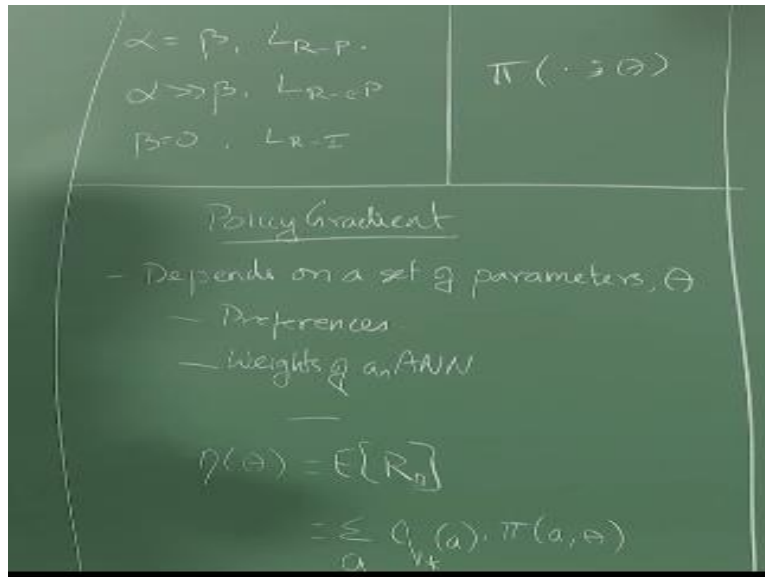 α = β, L_{R-P}.
α >> β, L_{R-εP}
β=0, L_{R-I}
π(· ; θ)
Policy Gradient
- Depends on a set of parameters, θ
- Preferences
- Weights of an ANN
—
η(θ) = E[R_n]
= Σ_a q_{*}(a) · π(a, θ)